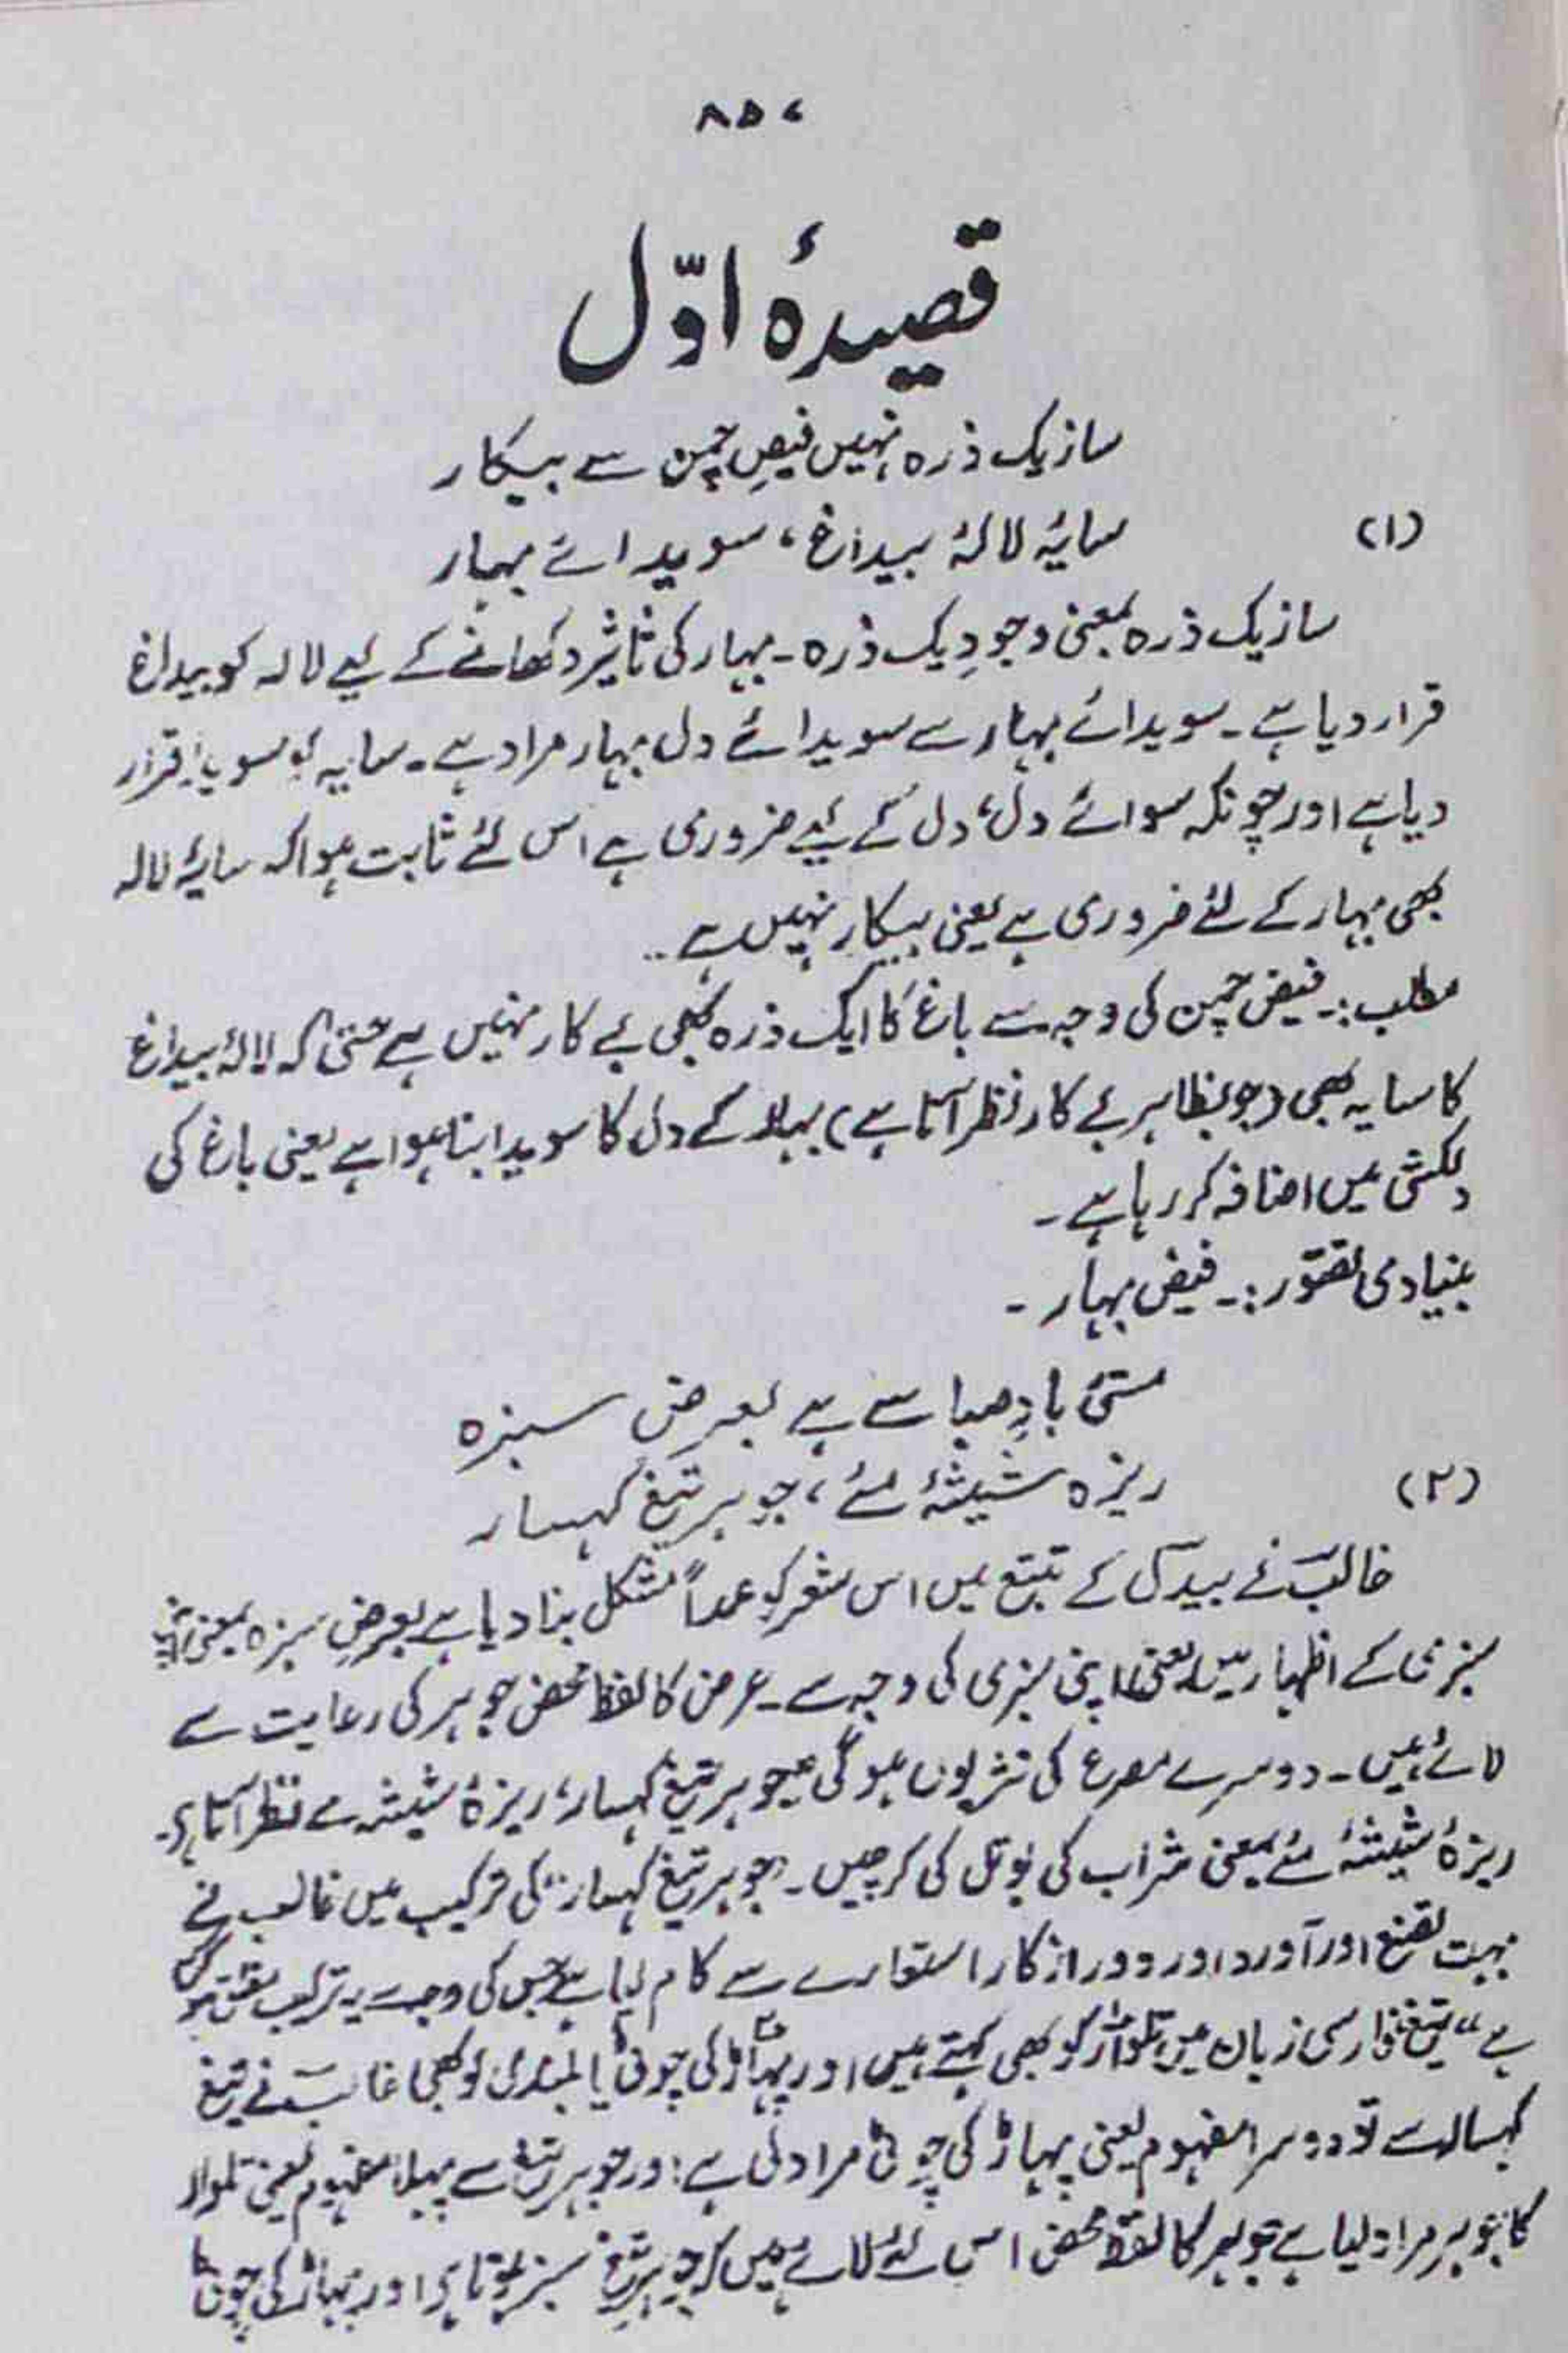 ۸۵۷
قصیدۂ اوّل
ساز یک ذرہ نہیں فیضِ چمن سے بیکار
(۱) سایۂ لالۂ بیداغ، سویدائے بہار
ساز یک ذرہ بمعنی وجودِ یک ذرہ ۔ بہار کی تاثیر دکھانے کے لیے لالہ کو بیداغ
قرار دیا ہے ۔ سویدائے بہار سے سویدائے دل بہار مراد ہے ۔ سایہ کو سویدا قرار
دیا ہے اور چونکہ سوائے دل، دل کے لیے ضروری ہے اس لئے ثابت ہوا کہ سایۂ لالہ
بھی بہار کے لئے ضروری ہے یعنی بیکار نہیں ہے ۔
مطلب :۔ فیض چمن کی وجہ سے باغ کا ایک ذرہ بھی بے کار نہیں ہے حتیٰ کہ لالۂ بیداغ
کا سایہ بھی (جو بظاہر بے کار نظر آتا ہے) بہار کے دل کا سویدا بنا ہوا ہے یعنی باغ کی
دلکشی میں اضافہ کر رہا ہے ۔
بنیادی تصوّر :۔ فیض بہار ۔
مستیٔ بادِ صبا سے ہے بعرض سبزہ
(۲) ریزہ شیشۂ مئے، جوہر تیغ کہسار
غالبؔ نے بیدلؔ کے تتبع میں اس شعر کو عمداً مشکل بنا دیا ہے بعرضِ سبزہ بمعنی
سبزی کے اظہار میں یعنی اپنی سبزی کی وجہ سے ۔ عرض کا لفظ محض جوہر کی رعایت سے
لائے ہیں ۔ دوسرے مصرع کی نثر یوں ہو گی جوہر تیغ کہسار، ریزۂ شیشہ مے نظر آتا ہے ۔
ریزۂ شیشۂ مئے بمعنی شراب کی بوتل کی کرچیں ۔ "جوہر تیغ کہسار" کی ترکیب میں غالب نے
بہت تصنع اور آورد اور دور از کار استعارے سے کام لیا ہے جس کی وجہ سے یہ ترکیب
ہے "تیغ" فارسی زبان میں تلوار کو بھی کہتے ہیں اور پہاڑ کی چوٹی یا بلندی کو بھی غالبؔ نے تیغ
کہسار سے تو دوسرا مفہوم یعنی پہاڑ کی چوٹی مراد لی ہے اور جوہر تیغ سے پہلا مفہوم یعنی تلوار
کا جوہر مراد لیا ہے جوہر کا لفظ محض اس لئے لائے ہیں کہ جوہر تیغ سبز ہوتا ہے اور پہاڑ کی چوٹی